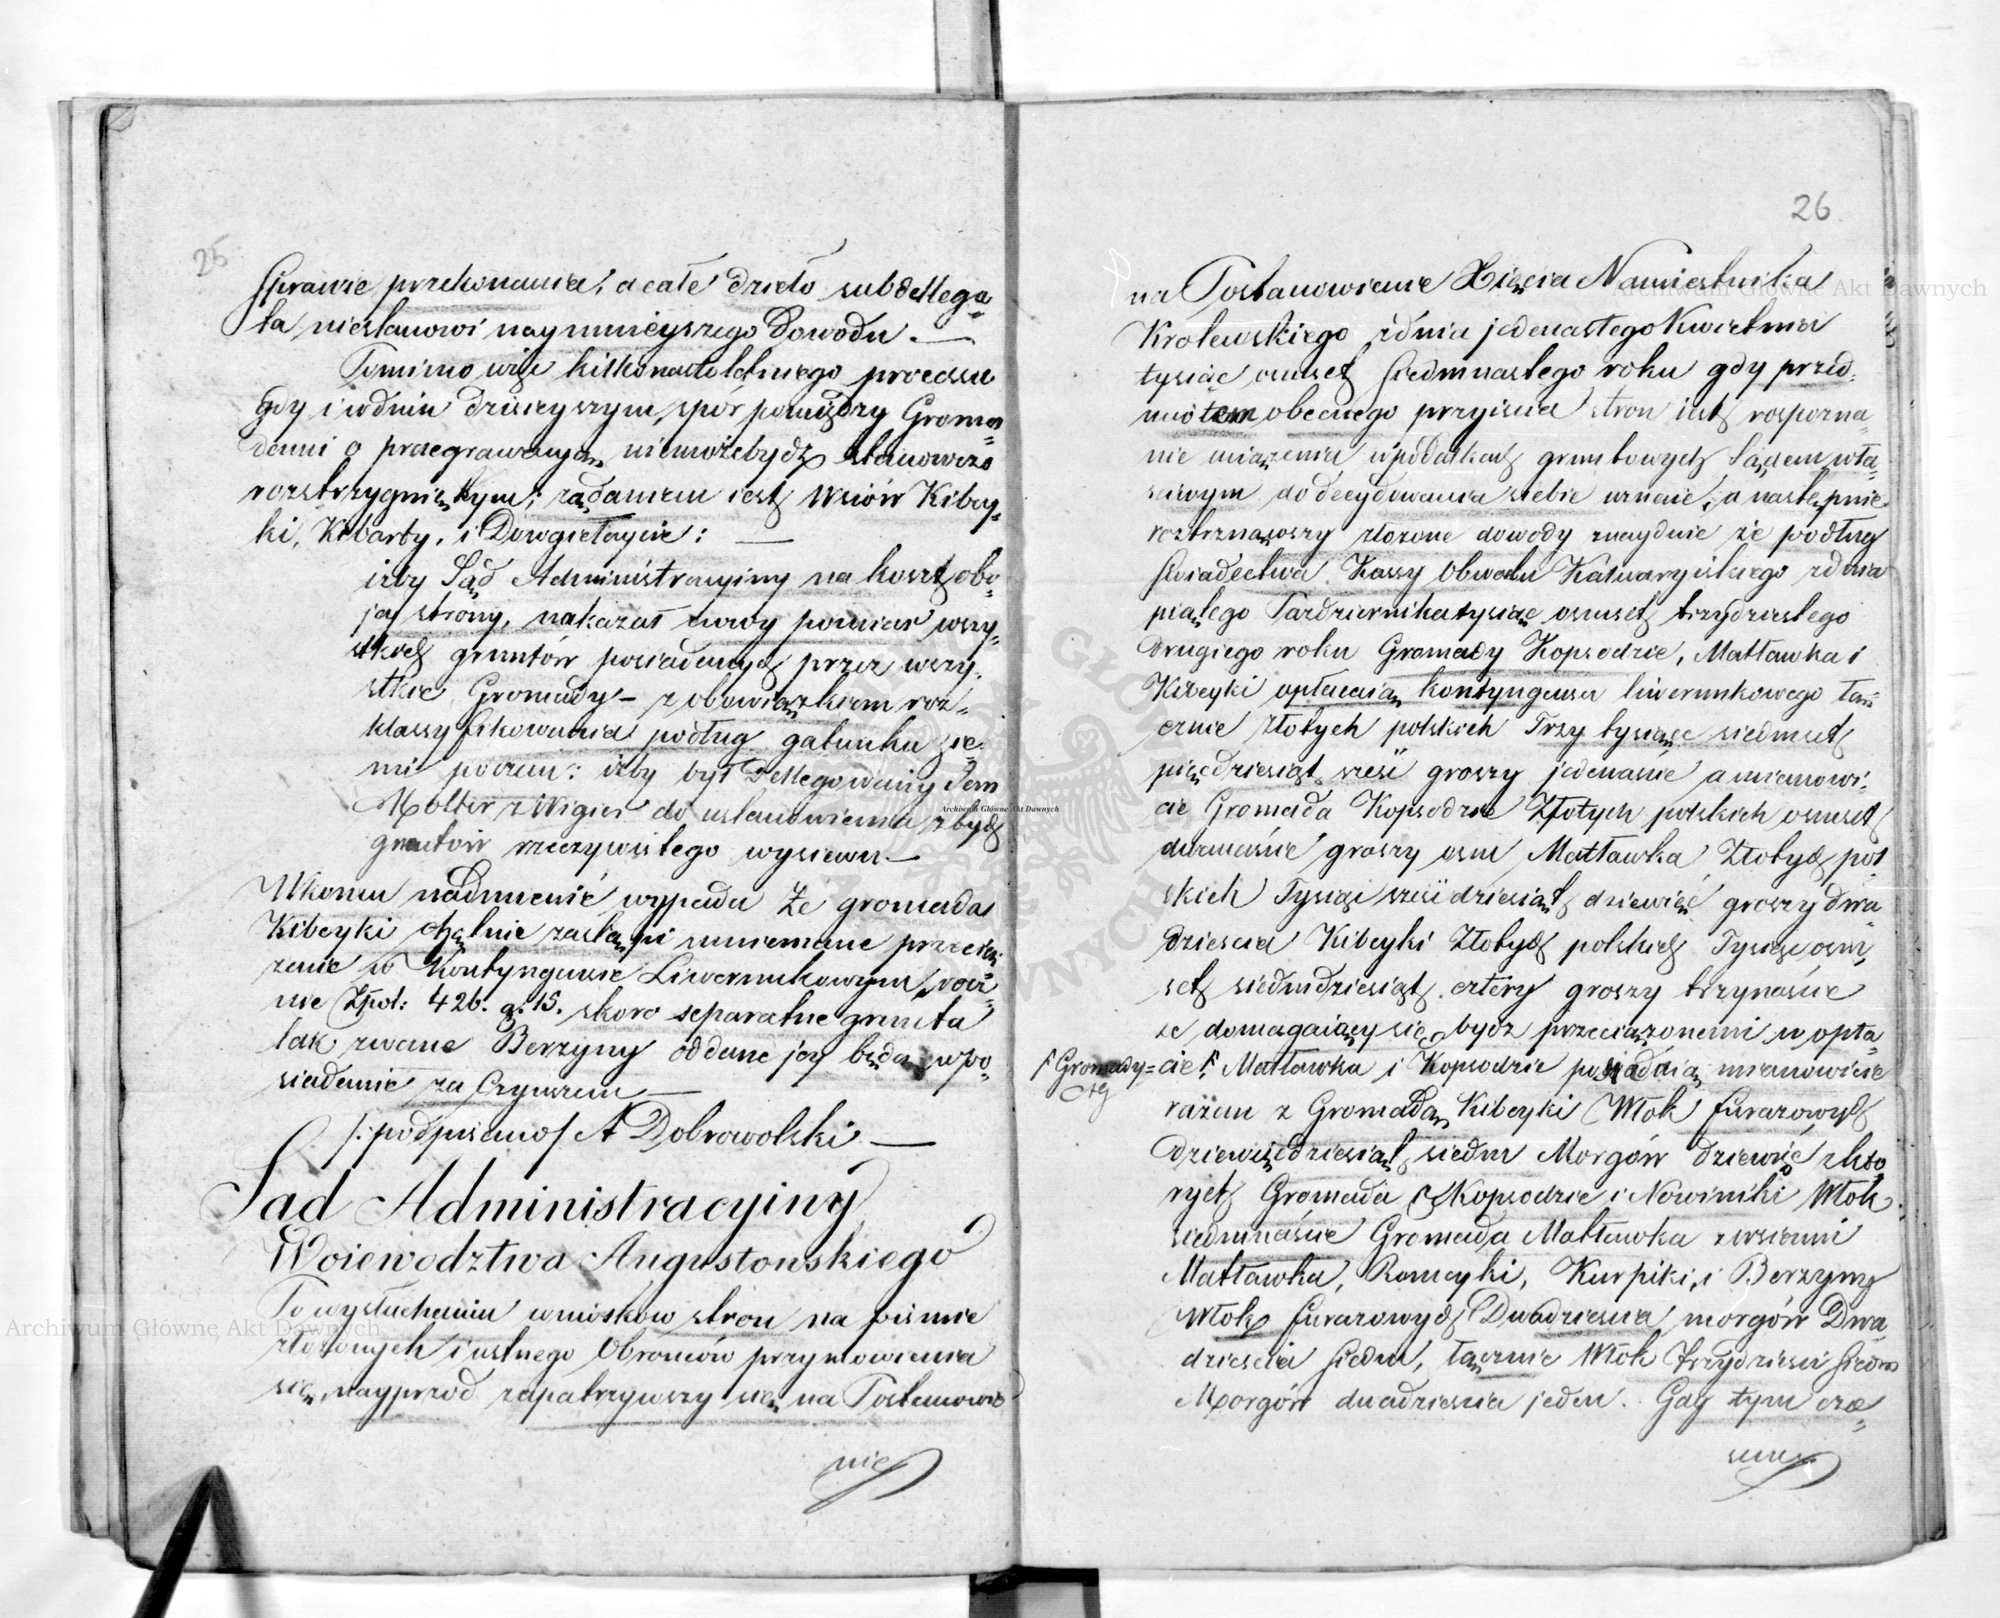 25
Sprawie przekonania, a całe dzieło subdellega=
ta niestanowi naymnieyszego dowodu. —
Pomimo więc kilkonastoletniego processu
gdy i wdniu dzisieyszym, spór pomiędzy Groma=
dami o praegrawacyą niemożebydź stanowczo
rozstrzygniętym; żądaniem iest Wsiów Kibey=
ki, Kibarty, i Dowgiełaycie: —
iżby Sąd Administracyiny na koszt obo=
jey strony, nakazał nowy pomiar wszy=
stkich gruntów posiadanych przez wszy=
stkie Gromady — z obowiązkiem roz=
klassyfikowania podług gatunku zie=
mi poczem: iżby był Dellegowany Pan
Molter z Wigier do ustanowienia z tych
gruntów rzeczywistego wysiewu —
Wkońcu nadmienić wypada że gromada
Kibeyki chętnie zastąpi mniemane przecią=
żenie w Kontyngensie Liwerunkowym rocz=
nie Złpol: 426. g. 15. skoro separatne grunta
tak zwane Berzyny oddane jey będą w po=
siadanie za Czynszem —
/: podpisano / A Dobrowolski —
Sąd Administracyiny
Woiewodztwa Augustowskiego
Po wysłuchaniu wniosków stron na piśmie
złożonych i ustnego Obrońców przymówienia
się, nayprzód zapatrzywszy się na Postanowie
nie
26
na Postanowienie Xięcia Namiestnika
Krolewskiego z dnia jedenastego Kwietnia
tysiąc osmset siedmnastego roku gdy przed=
miotem obecnego przyiścia stron iest rospozna=
nie uciążenia w podatkach gruntowych Sądem wła=
sciwym do decydowania siebie uznaie, a następnie
roztrznąwszy złożone dowody znayduie że podług
świadectwa Kassy Obwodu Kalwaryiskiego z dnia
piątego Pazdziernika tysiąc osmset trzydziestego
drugiego roku Gromady Kopsodzie, Matławka i
Kibeyki opłacaią kontyngensu liwerunkowego łą=
cznie złotych polskich Trzy tysiące siedmset
pięćdziesiąt sześć groszy jedenaście a mianowi=
cie Gromada Kopsodzie Złotych polskich osmset
dwanaście groszy osm Matławka Złotych pol
skich Tysiąc sześćdziesiąt dziewięć groszy dwa
dziescia Kibeyki Złotych polskich Tysiąc osm=
set siedmdziesiąt cztery groszy trzynaście
że domagaiący się bydź przeciążonemi w opła=
/ Gromady=
cie / Matławka i Kopsodzie posiadaią mianowicie
razem z Gromadą Kibeyki Włok furazowych
Dziewięćdziesiąt siedm Morgów dziewięć z któ
rych Gromada Kopsodzie i Nowiniki Włok
siedmnaście Gromada Matławka z wsiami
Matławka, Romeyki, Kurpiki, i Berzyny
Włok furazowych Dwadzieścia morgów Dwa
dziescia siedm, łącznie Włok trzydzieści siedm
Morgów dwadzieścia jeden. Gdy tym cza=
sem
Archiwum Główne Akt Dawnych
Archiwum Główne Akt Dawnych
Archiwum Główne Akt Dawnych